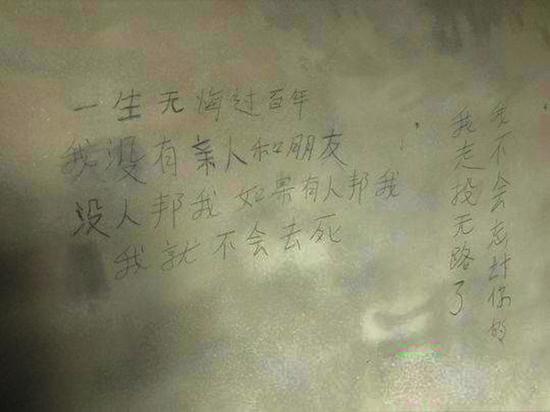 一生无悔过百年
我没有亲人和朋友
没人邦我 如果有人邦我
我就不会去死
我不会忘討你的
我走投无路了